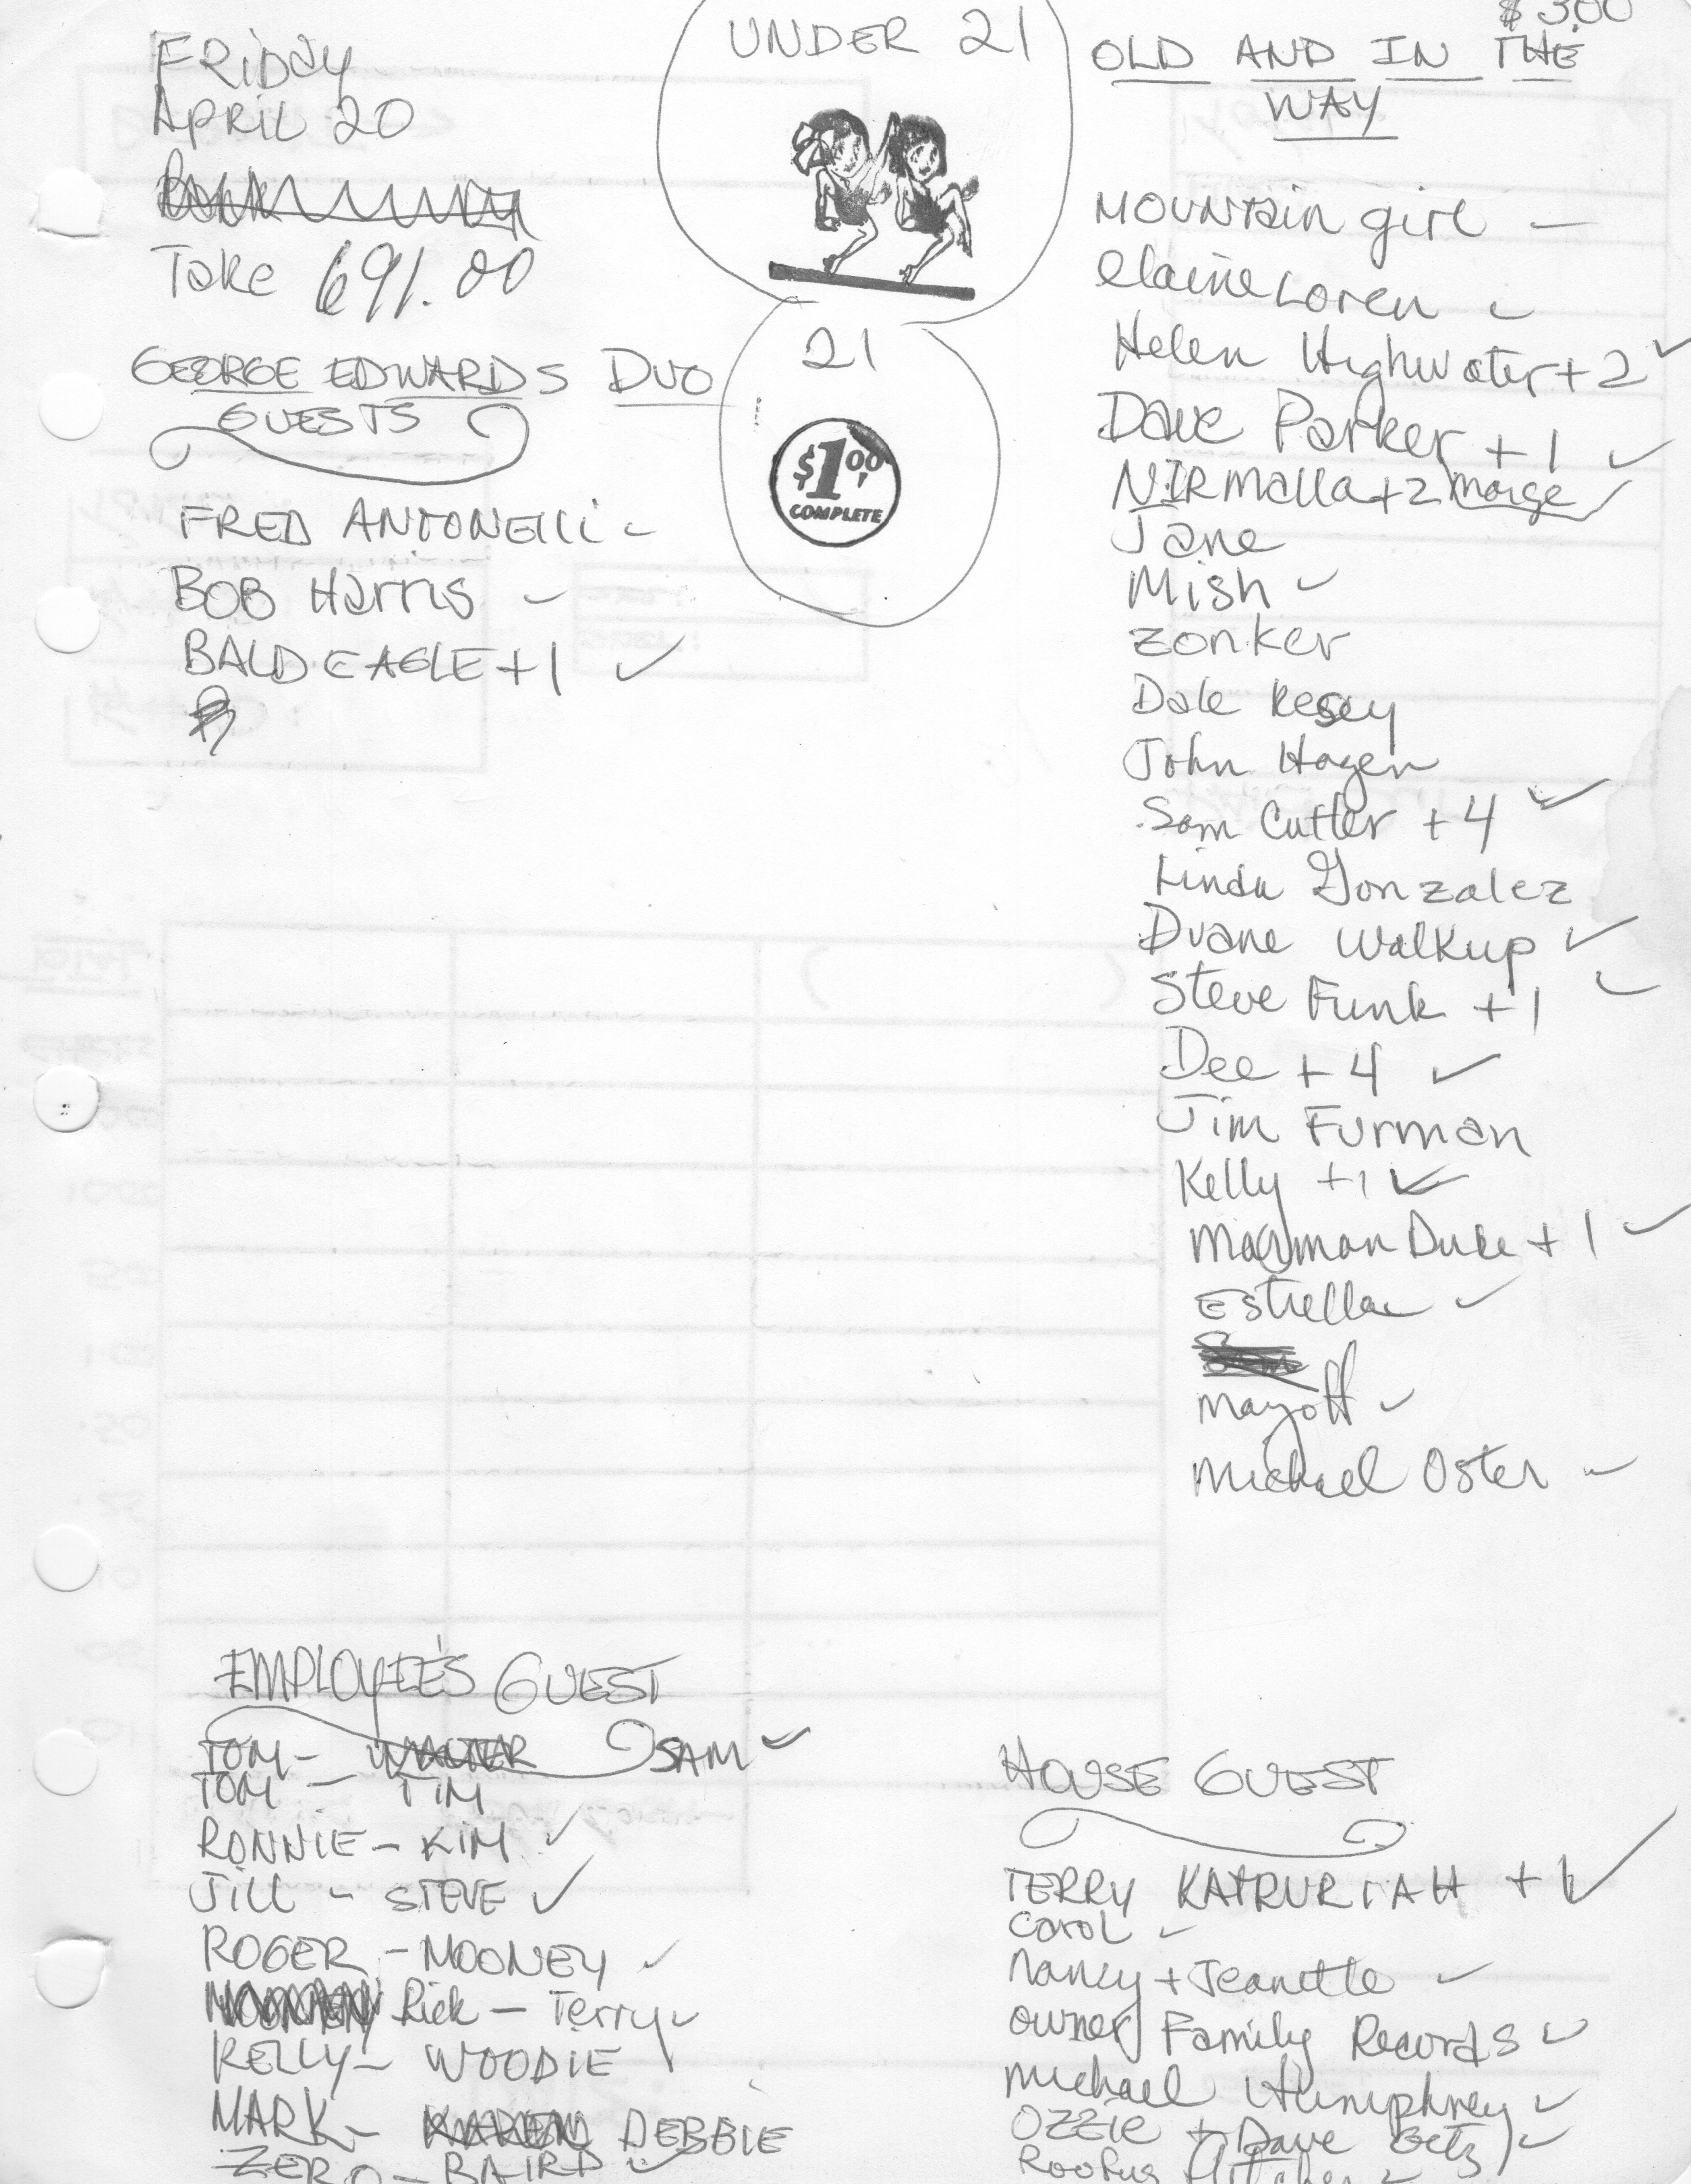 FRiDAY
APRiL 20
Take 691.00
GEORGE EDWARDS DUO
GUESTS
FRED ANTONELLi -
BOB Harris ✓
BALD EAGLE +1 ✓
UNDER 21
21
$1.00
COMPLETE
$3.00
OLD AND IN THE
WAY
MOUNTAin girl —
elaine Loren ✓
Helen Highwater +2 ✓
Dave Parker +1 ✓
NIRmalla +2 marge ✓
Jane
Mish ✓
zonker
Dale Kesey
John Hagen
Sam Cutler +4 ✓
Linda Gonzalez
Duane Walkup ✓
Steve Funk +1 ✓
Dee +4 ✓
Jim Furman
Kelly +1 ✓
Duke +1 ✓
Estrella ✓
mayoff ✓
michael Oster ✓
EMPLOYEE'S GUEST
TOM - WALTER SAM ✓
TOM — TIM
RONNIE - KIM ✓
JiLL - STEVE ✓
ROGER - MOONEY ✓
Rick — Terry ✓
KELLY - WOODIE
MARK - KAREN DEBBIE
ZERO - BAIRD ✓
HOUSE GUEST
TERRY KATRURIAH +1 ✓
Carol ✓
Nancy + Jeanette ✓
owner Family Records ✓
michael Humphrey ✓
OZZIE + Dave Getz ✓
Roofus